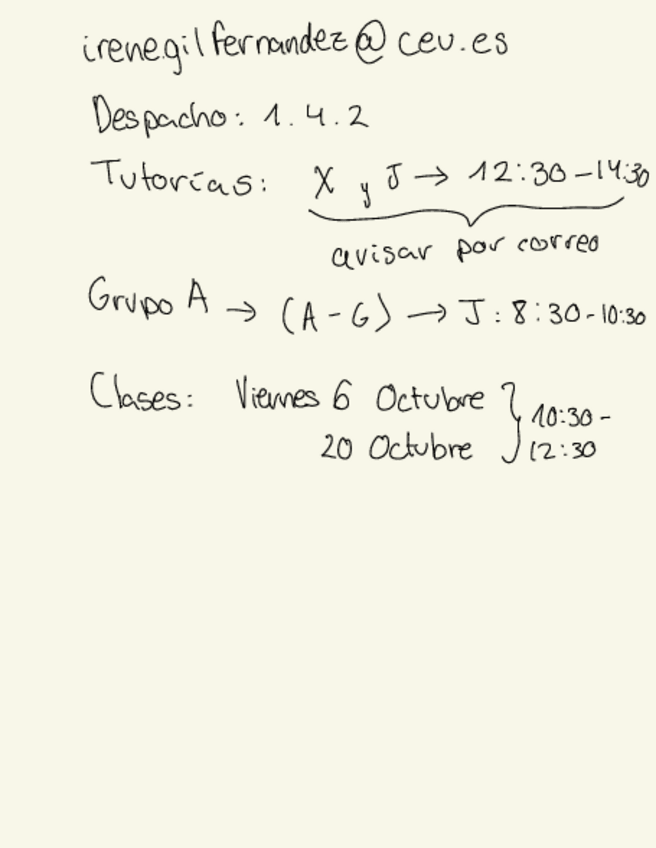 irene.gilfernandez@ceu.es
Despacho: 1.4.2
Tutorías: X y J → 12:30-14:30
avisar por correo
Grupo A → (A-G) → J: 8:30-10:30
Clases: Viernes 6 Octubre } 10:30-
20 Octubre 12:30